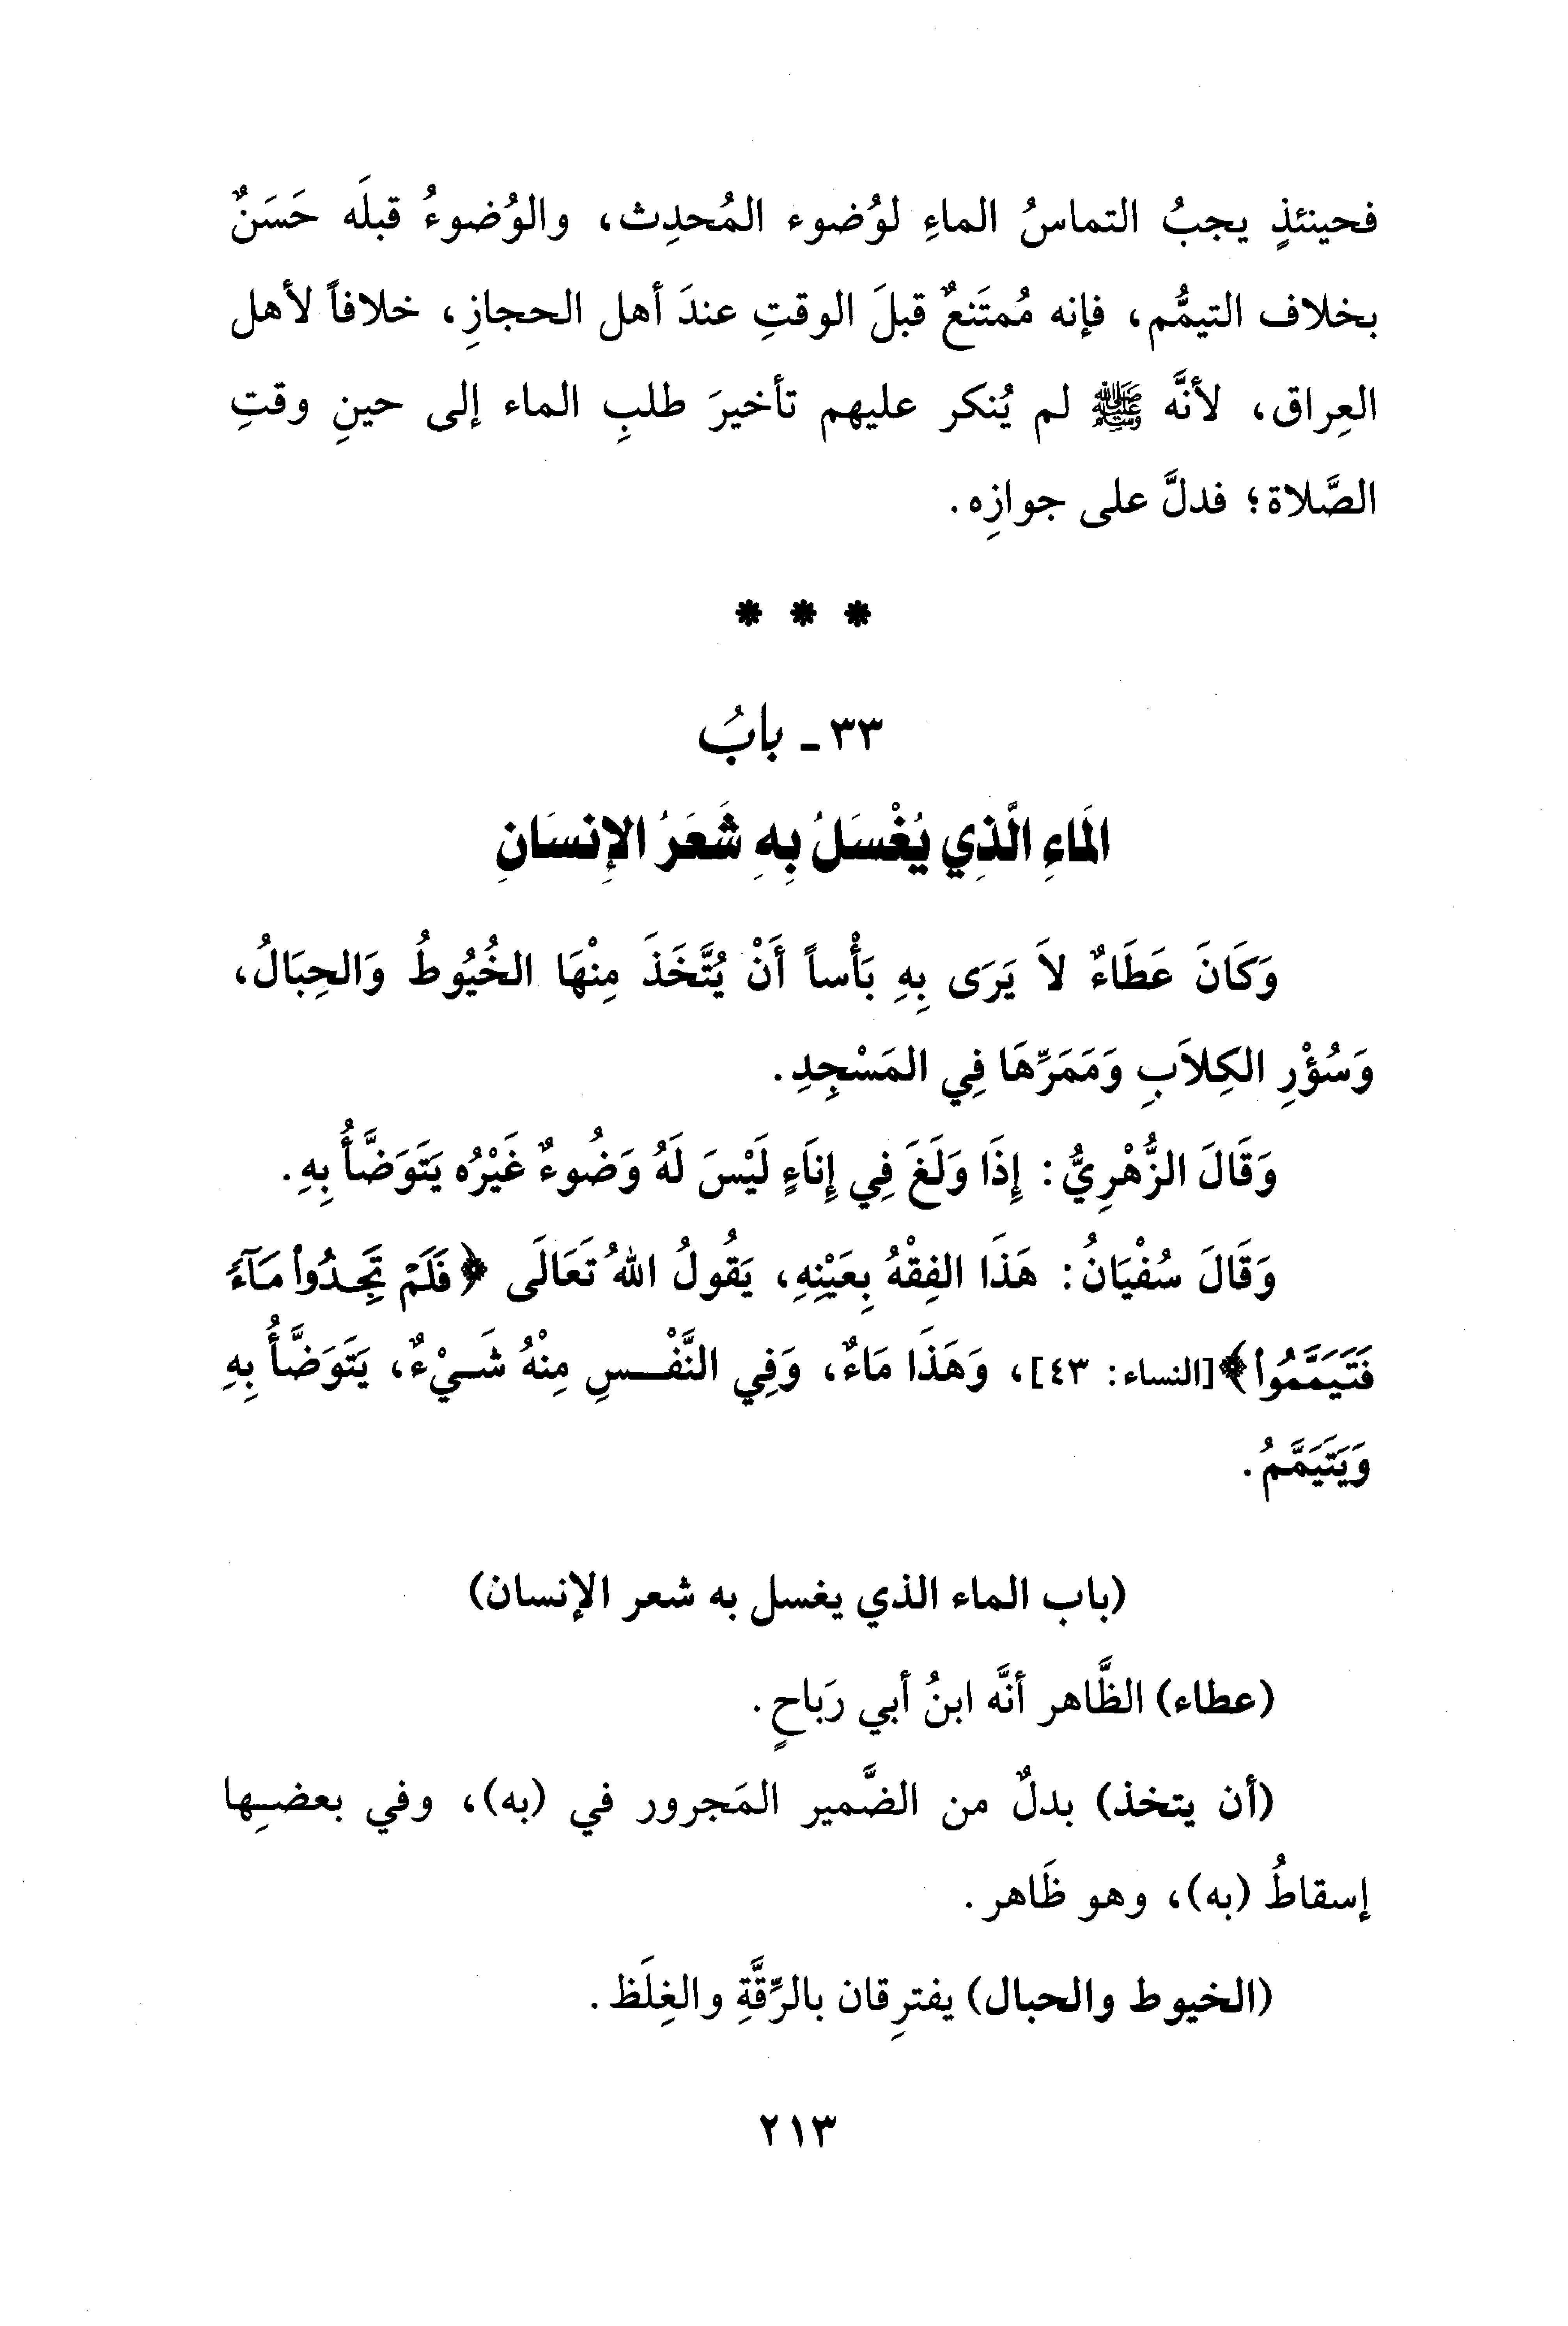 فحينئذٍ يجبُ التماسُ الماءِ لوُضوء المُحدِث، والوُضوءُ قبلَه حَسَنٌ
بخلاف التيمُّم، فإنه مُمتَنعٌ قبلَ الوقتِ عندَ أهل الحجازِ، خلافاً لأهل
العِراق، لأنَّه ﷺ لم يُنكر عليهم تأخيرَ طلبِ الماء إلى حينِ وقتِ
الصَّلاة؛ فدلَّ على جوازِه.
* * *
٣٣ - بابُ
المَاءِ الَّذِي يُغْسَلُ بِهِ شَعَرُ الإِنسَانِ
وَكَانَ عَطَاءٌ لاَ يَرَى بِهِ بَأْساً أَنْ يُتَّخَذَ مِنْهَا الخُيُوطُ وَالحِبَالُ،
وَسُؤْرِ الكِلاَبِ وَمَمَرِّهَا فِي المَسْجِدِ.
وَقَالَ الزُّهْرِيُّ: إِذَا وَلَغَ فِي إِنَاءٍ لَيْسَ لَهُ وَضُوءٌ غَيْرُه يَتَوَضَّأُ بِهِ.
وَقَالَ سُفْيَانُ: هَذَا الفِقْهُ بِعَيْنِهِ، يَقُولُ اللهُ تَعَالَى ﴿فَلَمْ تَجِدُوا مَآءً
فَتَيَمَّمُوا﴾[النساء: ٤٣]، وَهَذَا مَاءٌ، وَفِي النَّفْسِ مِنْهُ شَيْءٌ، يَتَوَضَّأُ بِهِ
وَيَتَيَمَّمُ.
(باب الماء الذي يغسل به شعر الإنسان)
(عطاء) الظَّاهر أنَّه ابنُ أبي رَباحٍ.
(أن يتخذ) بدلٌ من الضَّمير المَجرور في (به)، وفي بعضِها
إسقاطُ (به)، وهو ظَاهر.
(الخيوط والحبال) يفترِقان بالرِّقَّةِ والغِلَظ.
٢١٣